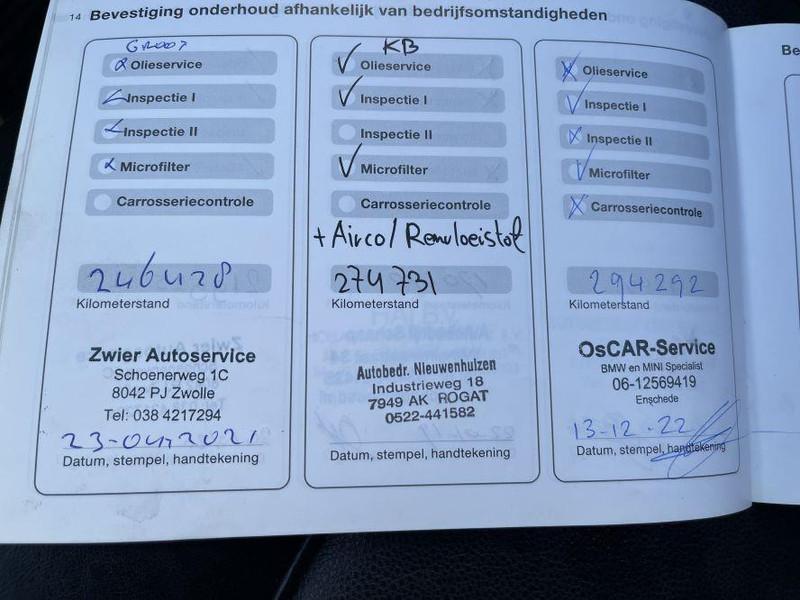 14 Bevestiging onderhoud afhankelijk van bedrijfsomstandigheden
GROOT
Olieservice
Inspectie I
Inspectie II
Microfilter
Carrosseriecontrole
246428
Kilometerstand
Zwier Autoservice
Schoenerweg 1C
8042 PJ Zwolle
Tel: 038 4217294
23-04-2021
Datum, stempel, handtekening
KB
Olieservice
Inspectie I
Inspectie II
Microfilter
Carrosseriecontrole
+ Airco/Remvloeistof
274731
Kilometerstand
Autobedr. Nieuwenhuizen
Industrieweg 18
7949 AK ROGAT
0522-441582
Datum, stempel, handtekening
Olieservice
Inspectie I
Inspectie II
Microfilter
Carrosseriecontrole
294292
Kilometerstand
OsCAR-Service
BMW en MINI Specialist
06-12569419
Enschede
13-12-22
Datum, stempel, handtekening
Be